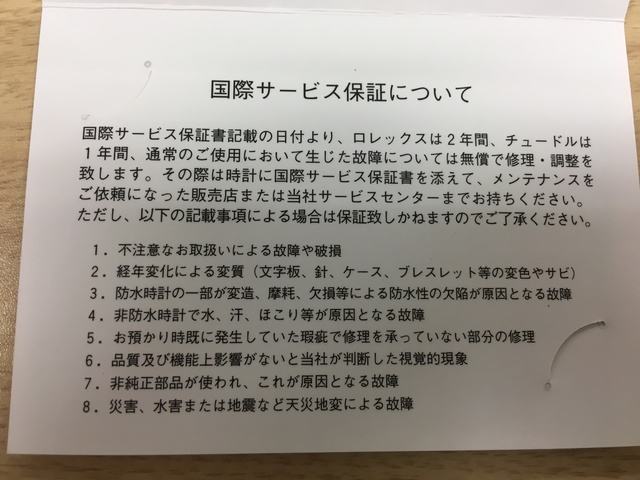 国際サービス保証について
国際サービス保証書記載の日付より、ロレックスは２年間、チュードルは
１年間、通常のご使用において生じた故障については無償で修理・調整を
致します。その際は時計に国際サービス保証書を添えて、メンテナンスを
ご依頼になった販売店または当社サービスセンターまでお持ちください。
ただし、以下の記載事項による場合は保証致しかねますのでご了承ください。
１．不注意なお取扱いによる故障や破損
２．経年変化による変質（文字板、針、ケース、ブレスレット等の変色やサビ）
３．防水時計の一部が変造、摩耗、欠損等による防水性の欠陥が原因となる故障
４．非防水時計で水、汗、ほこり等が原因となる故障
５．お預かり時既に発生していた瑕疵で修理を承っていない部分の修理
６．品質及び機能上影響がないと当社が判断した視覚的現象
７．非純正部品が使われ、これが原因となる故障
８．災害、水害または地震など天災地変による故障